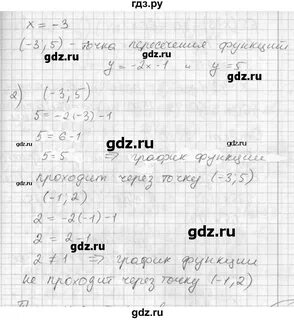 gdz.ru
x = -3
gdz.ru
(-3; 5) - точка пересечения функций
y = -2x - 1 и y = 5
gdz.ru
2) (-3; 5)
5 = -2(-3) - 1
gdz.ru
5 = 6 - 1
5 = 5 ⇒ график функции
проходит через точку (-3; 5)
(-1; 2)
gdz.ru
2 = -2(-1) - 1
2 = 2 - 1
gdz.ru
2 ≠ 1 ⇒ график функции
не проходит через точку (-1; 2)
gdz.ru